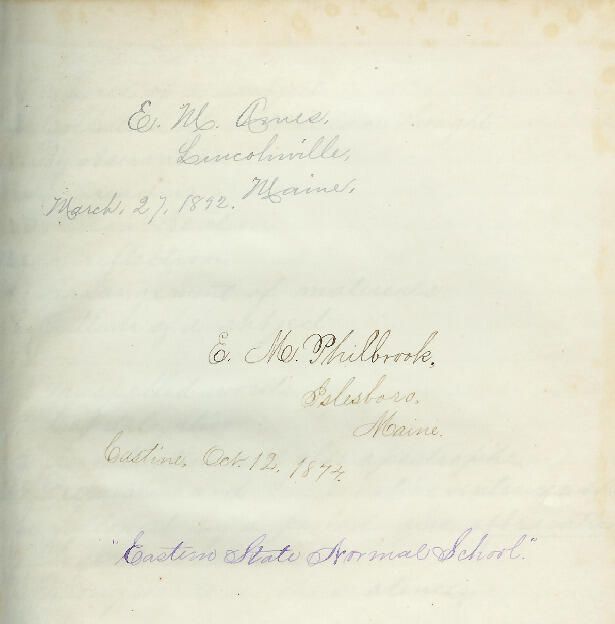 E. M. Ames,
Lincolnville,
Maine,
March, 27, 1892.
E. M. Philbrook.
Islesboro,
Maine.
Castine, Oct. 12, 1874.
"Eastern State Normal School."